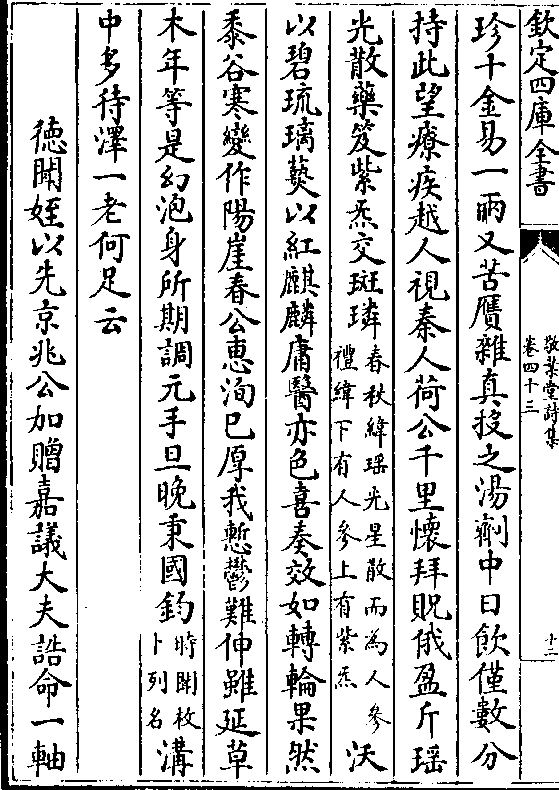 欽定四庫全書
敬業堂詩集
卷四十三
十二
珍十金易一兩又苦贗雜真投之湯劑中日飲僅數分
持此望療疾越人視秦人荷公千里懷拜貺俄盈斤瑶
光散藥笈紫炁交斑璘春秋緯瑶光星散而為人參禮緯下有人參上有紫炁沃
以碧琉璃爇以紅麒麟庸醫亦色喜奏效如轉輪果然
黍谷寒變作陽崖春公惠洵已厚我慙鬱難伸雖延草
木年等是幻泡身所期調元手旦晚秉國鈞時聞枚卜列名溝
中多待澤一老何足云
德聞姪以先京兆公加贈嘉議大夫誥命一軸